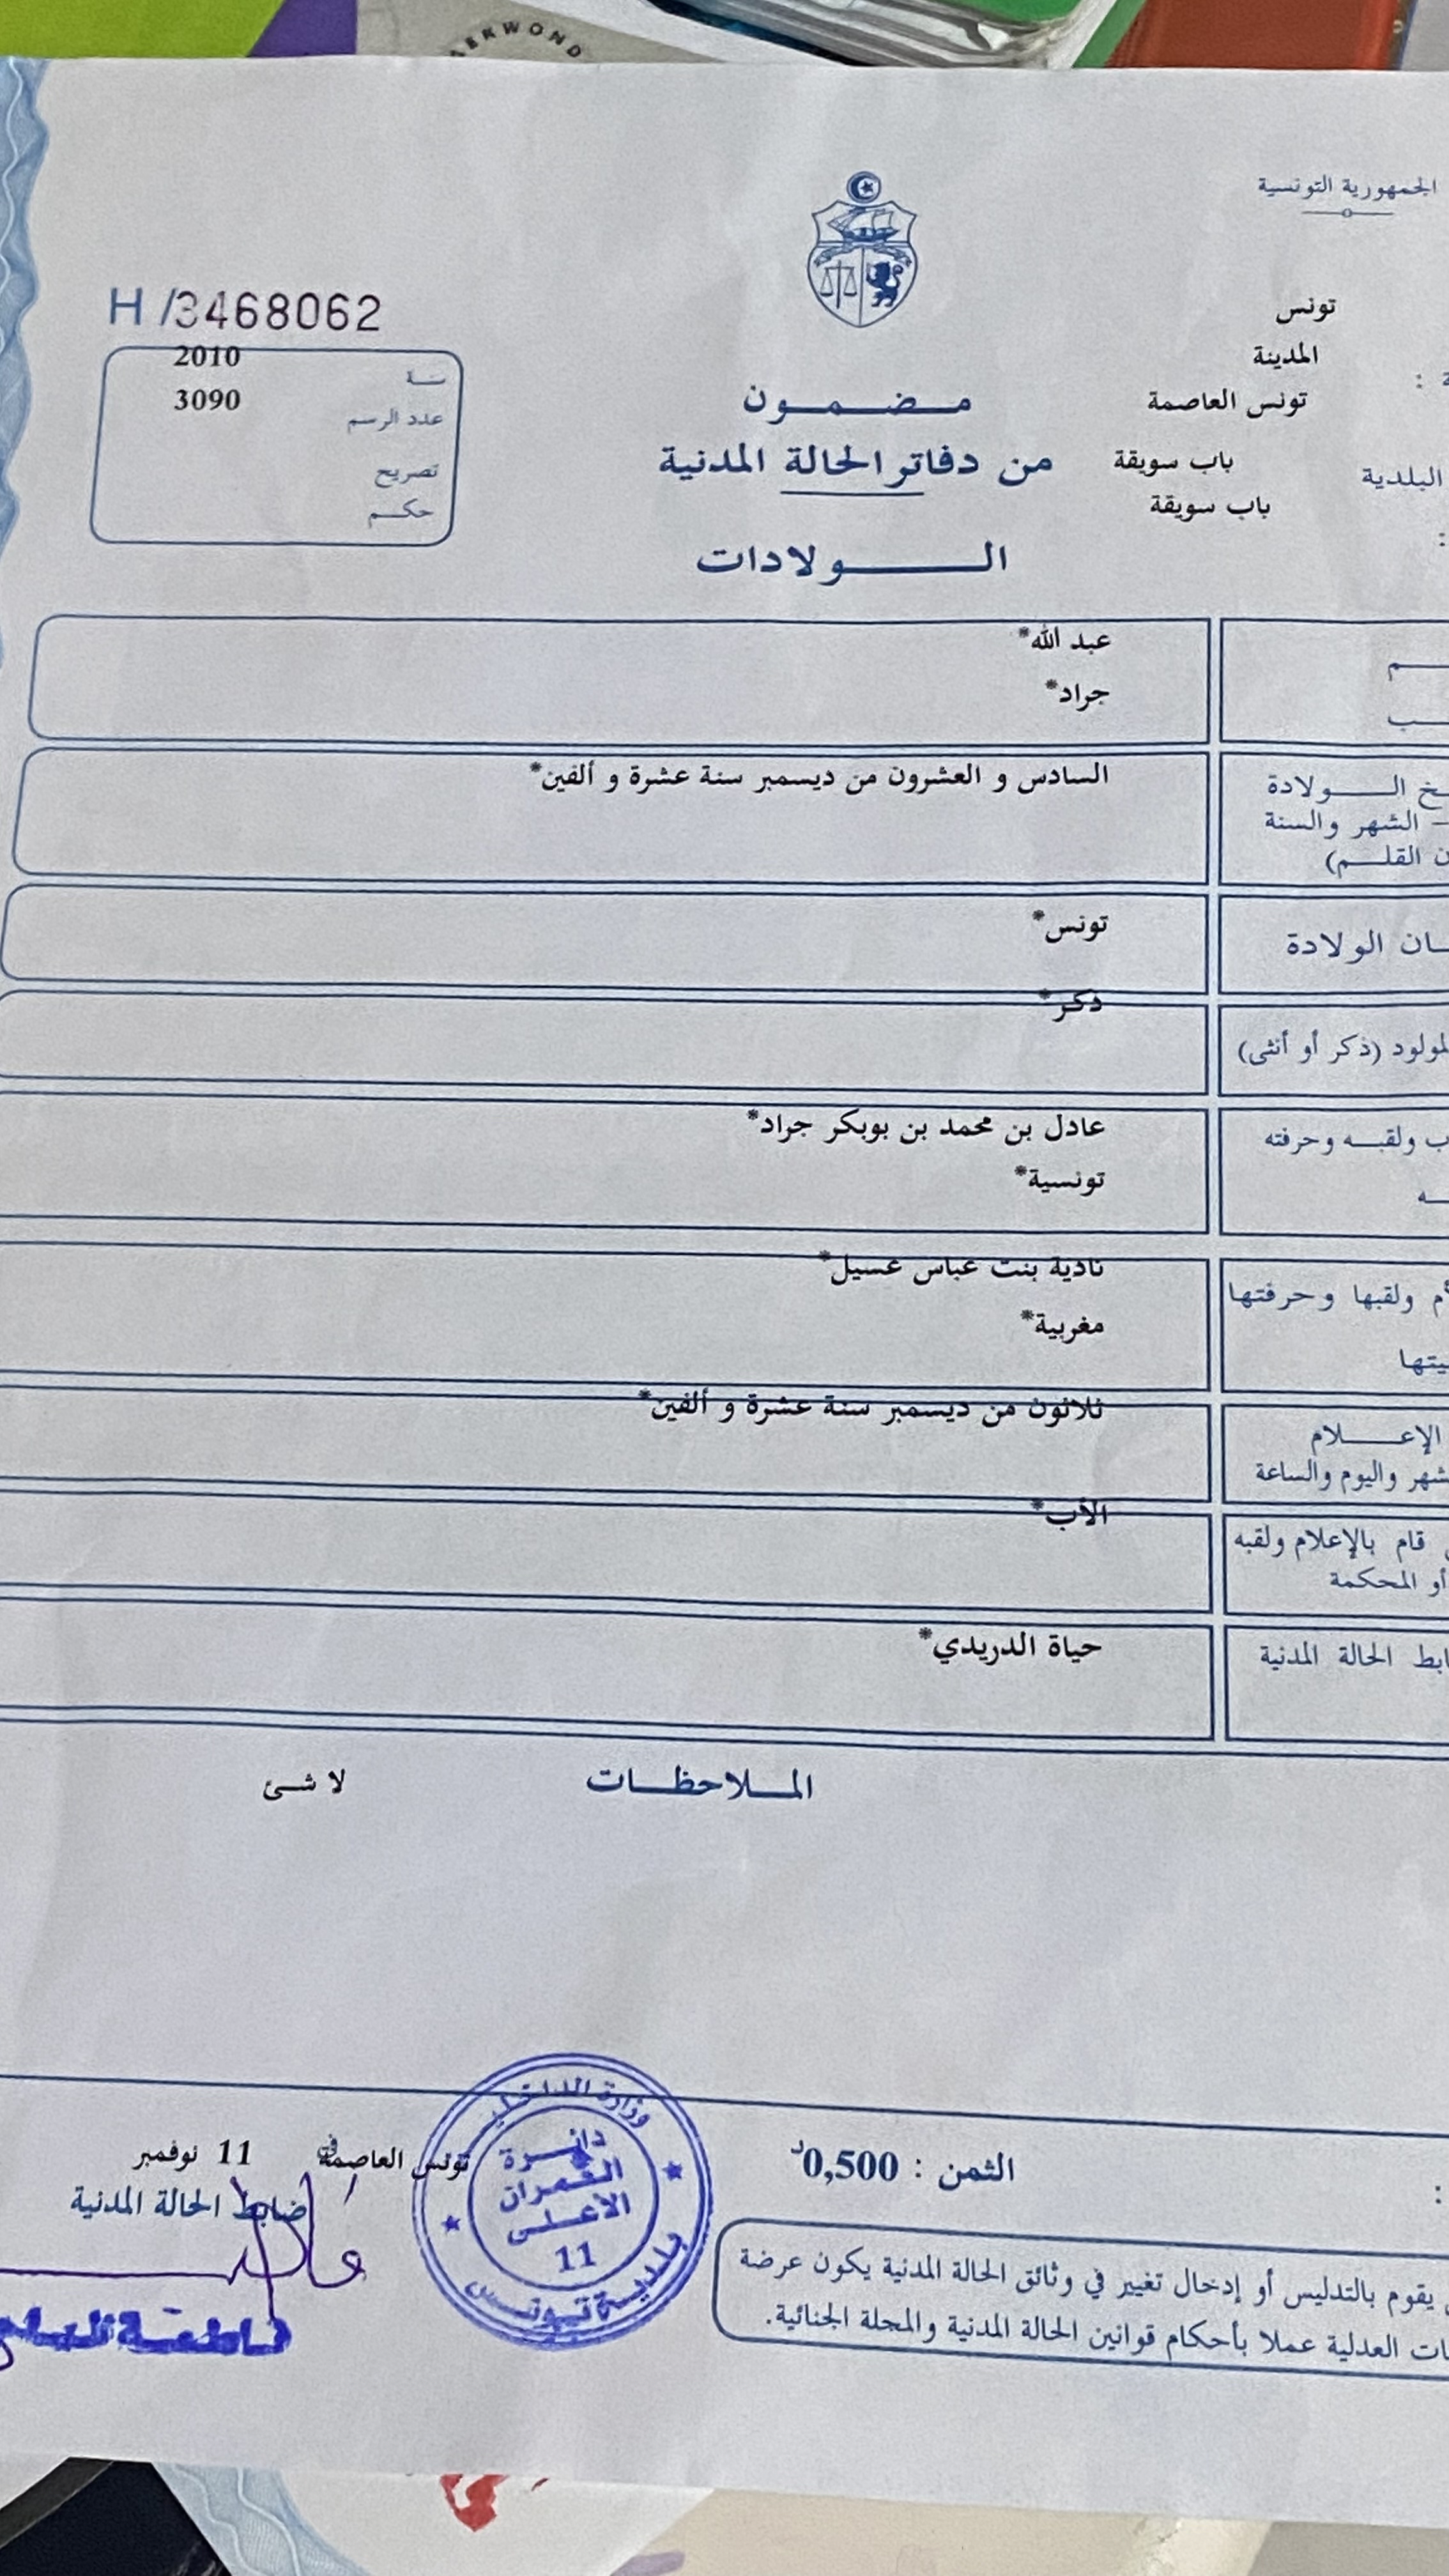 الجمهورية التونسية
تونس
المدينة
تونس العاصمة
باب سويقة
البلدية
باب سويقة
مضمون
من دفاتر الحالة المدنية
الولادات
H /3468062
2010
سنة
3090
عدد الرسم
تصريح
حكم
عبد الله*
جراد*
الولادة
الشهر والسنة
القلم)
السادس و العشرون من ديسمبر سنة عشرة و ألفين*
الولادة
تونس*
(ذكر أو أنثى)
ذكر*
ولقبه وحرفته
عادل بن محمد بن بوبكر جراد*
تونسية*
ولقبها وحرفتها
نادية بنت عباس عسيل*
مغربية*
الإعلام
واليوم والساعة
ثلاثون من ديسمبر سنة عشرة و ألفين*
قام بالإعلام ولقبه
أو المحكمة
الأب*
الحالة المدنية
حياة الدريدي*
الملاحظات
لا شئ
الثمن : 0,500د
تونس العاصمة في 11 نوفمبر
ضابط الحالة المدنية
وزارة الداخلية
دائرة
العمران
الأعلى
11
بلدية تونس
يقوم بالتدليس أو إدخال تغيير في وثائق الحالة المدنية يكون عرضة
العدلية عملا بأحكام قوانين الحالة المدنية والمجلة الجنائية.